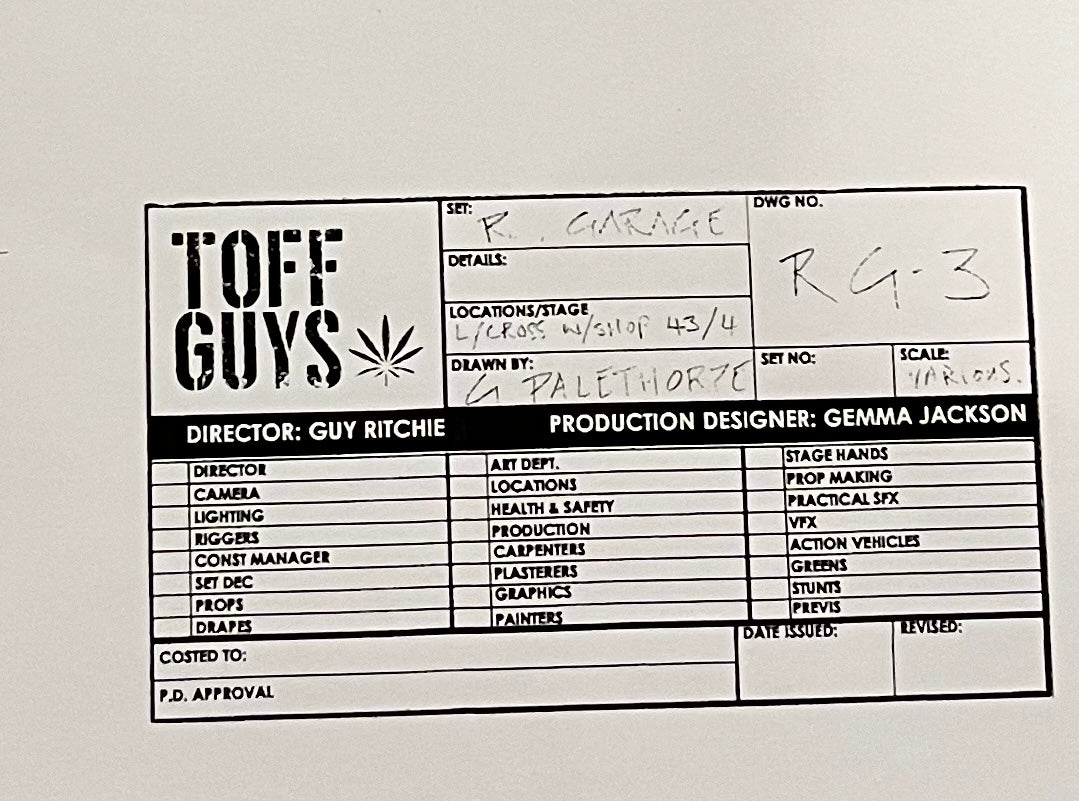 TOFF
GUYS
SET:
R. GARAGE
DETAILS:
LOCATIONS/STAGE
L/CROSS W/SHOP 43/4
DRAWN BY:
G PALETHORPE
DWG NO.
RG-3
SET NO:
SCALE:
VARIOUS.
DIRECTOR: GUY RITCHIE
PRODUCTION DESIGNER: GEMMA JACKSON
DIRECTOR
CAMERA
LIGHTING
RIGGERS
CONST MANAGER
SET DEC
PROPS
DRAPES
ART DEPT.
LOCATIONS
HEALTH & SAFETY
PRODUCTION
CARPENTERS
PLASTERERS
GRAPHICS
PAINTERS
STAGE HANDS
PROP MAKING
PRACTICAL SFX
VFX
ACTION VEHICLES
GREENS
STUNTS
PREVIS
COSTED TO:
P.D. APPROVAL
DATE ISSUED:
REVISED: